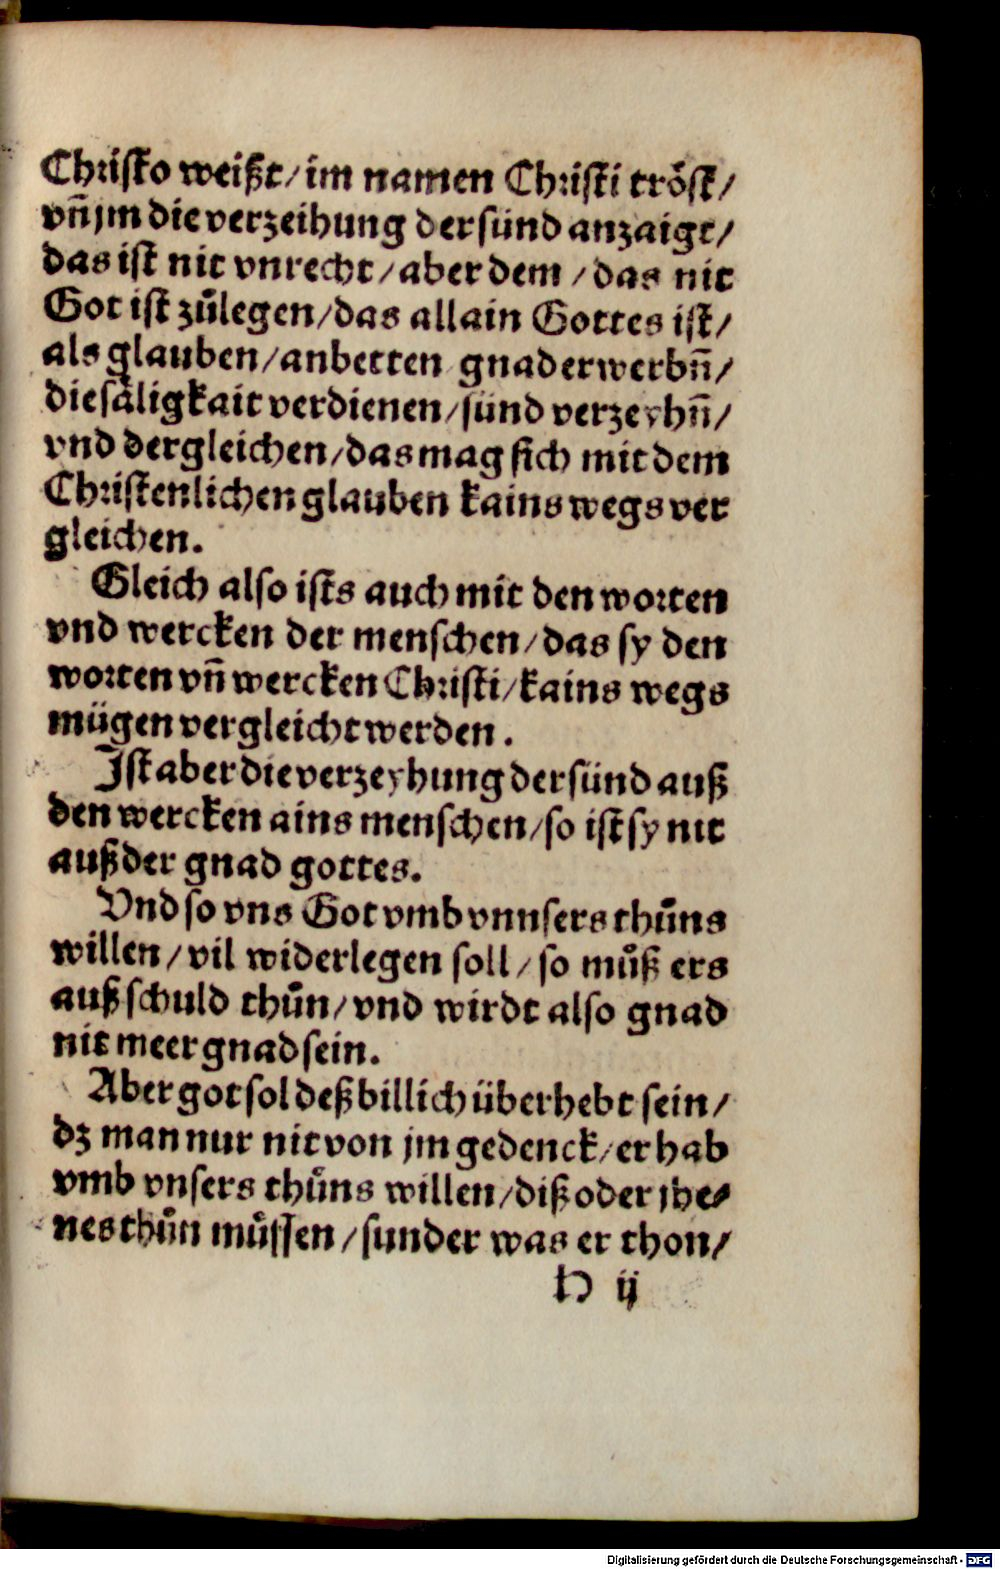 Christo weißt/im namen Christi tröst/
vn̄ jm die verzeihung der sünd anzaigt/
das ist nit vnrecht/aber dem/das nit
Got ist zůlegen/das allain Gottes ist/
als glauben/anbetten gnad erwerbn̄/
die säligkait verdienen/sünd verzeyhn̄/
vnd dergleichen/das mag sich mit dem
Christenlichen glauben kains wegs ver
gleichen.
Gleich also ists auch mit den worten
vnd wercken der menschen/das sy den
worten vn̄ wercken Christi/kains wegs
mügen vergleicht werden.
Ist aber die verzeyhung der sünd auß
den wercken ains menschen/so ist sy nit
auß der gnad gottes.
Vnd so vns Got vmb vnnsers thůns
willen/vil widerlegen soll/so můß ers
auß schuld thůn/vnd wirdt also gnad
nit meer gnad sein.
Aber got sol deß billich überhebt sein/
dz man nur nit von jm gedenck/er hab
vmb vnsers thůns willen/diß oder jhe⸗
nes thůn müssen/sunder was er thon/
H ij
Digitalisierung gefördert durch die Deutsche Forschungsgemeinschaft - DFG